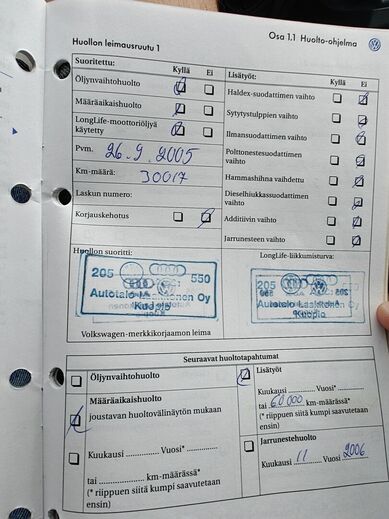 Osa 1.1 Huolto-ohjelma
Huollon leimausruutu 1
Suoritettu: Kyllä Ei
Öljynvaihtohuolto
Määräaikaishuolto
LongLife-moottoriöljyä
käytetty
Pvm. 26.9.2005
Km-määrä: 30017
Laskun numero:
Korjauskehotus
Lisätyöt: Kyllä Ei
Haldex-suodattimen vaihto
Sytytystulppien vaihto
Ilmansuodattimen vaihto
Polttonestesuodattimen
vaihto
Hammashihna vaihdettu
Dieselhiukkassuodattimen
vaihto
Additiivin vaihto
Jarrunesteen vaihto
Huollon suoritti:
205 550
Autotalo Laakkonen Oy
Kuopio
Volkswagen-merkkikorjaamon leima
LongLife-liikkumisturva:
205
Autotalo Laakkonen Oy
Kuopio
Seuraavat huoltotapahtumat
Öljynvaihtohuolto
Määräaikaishuolto
joustavan huoltovälinäytön mukaan
Kuukausi ........ Vuosi* ........
tai ........ km-määrässä*
(* riippuen siitä kumpi saavutetaan
ensin)
Lisätyöt
Kuukausi ........ Vuosi* ........
tai 60 000 km-määrässä*
(* riippuen siitä kumpi saavutetaan
ensin)
Jarrunestehuolto
Kuukausi 11 Vuosi 2006